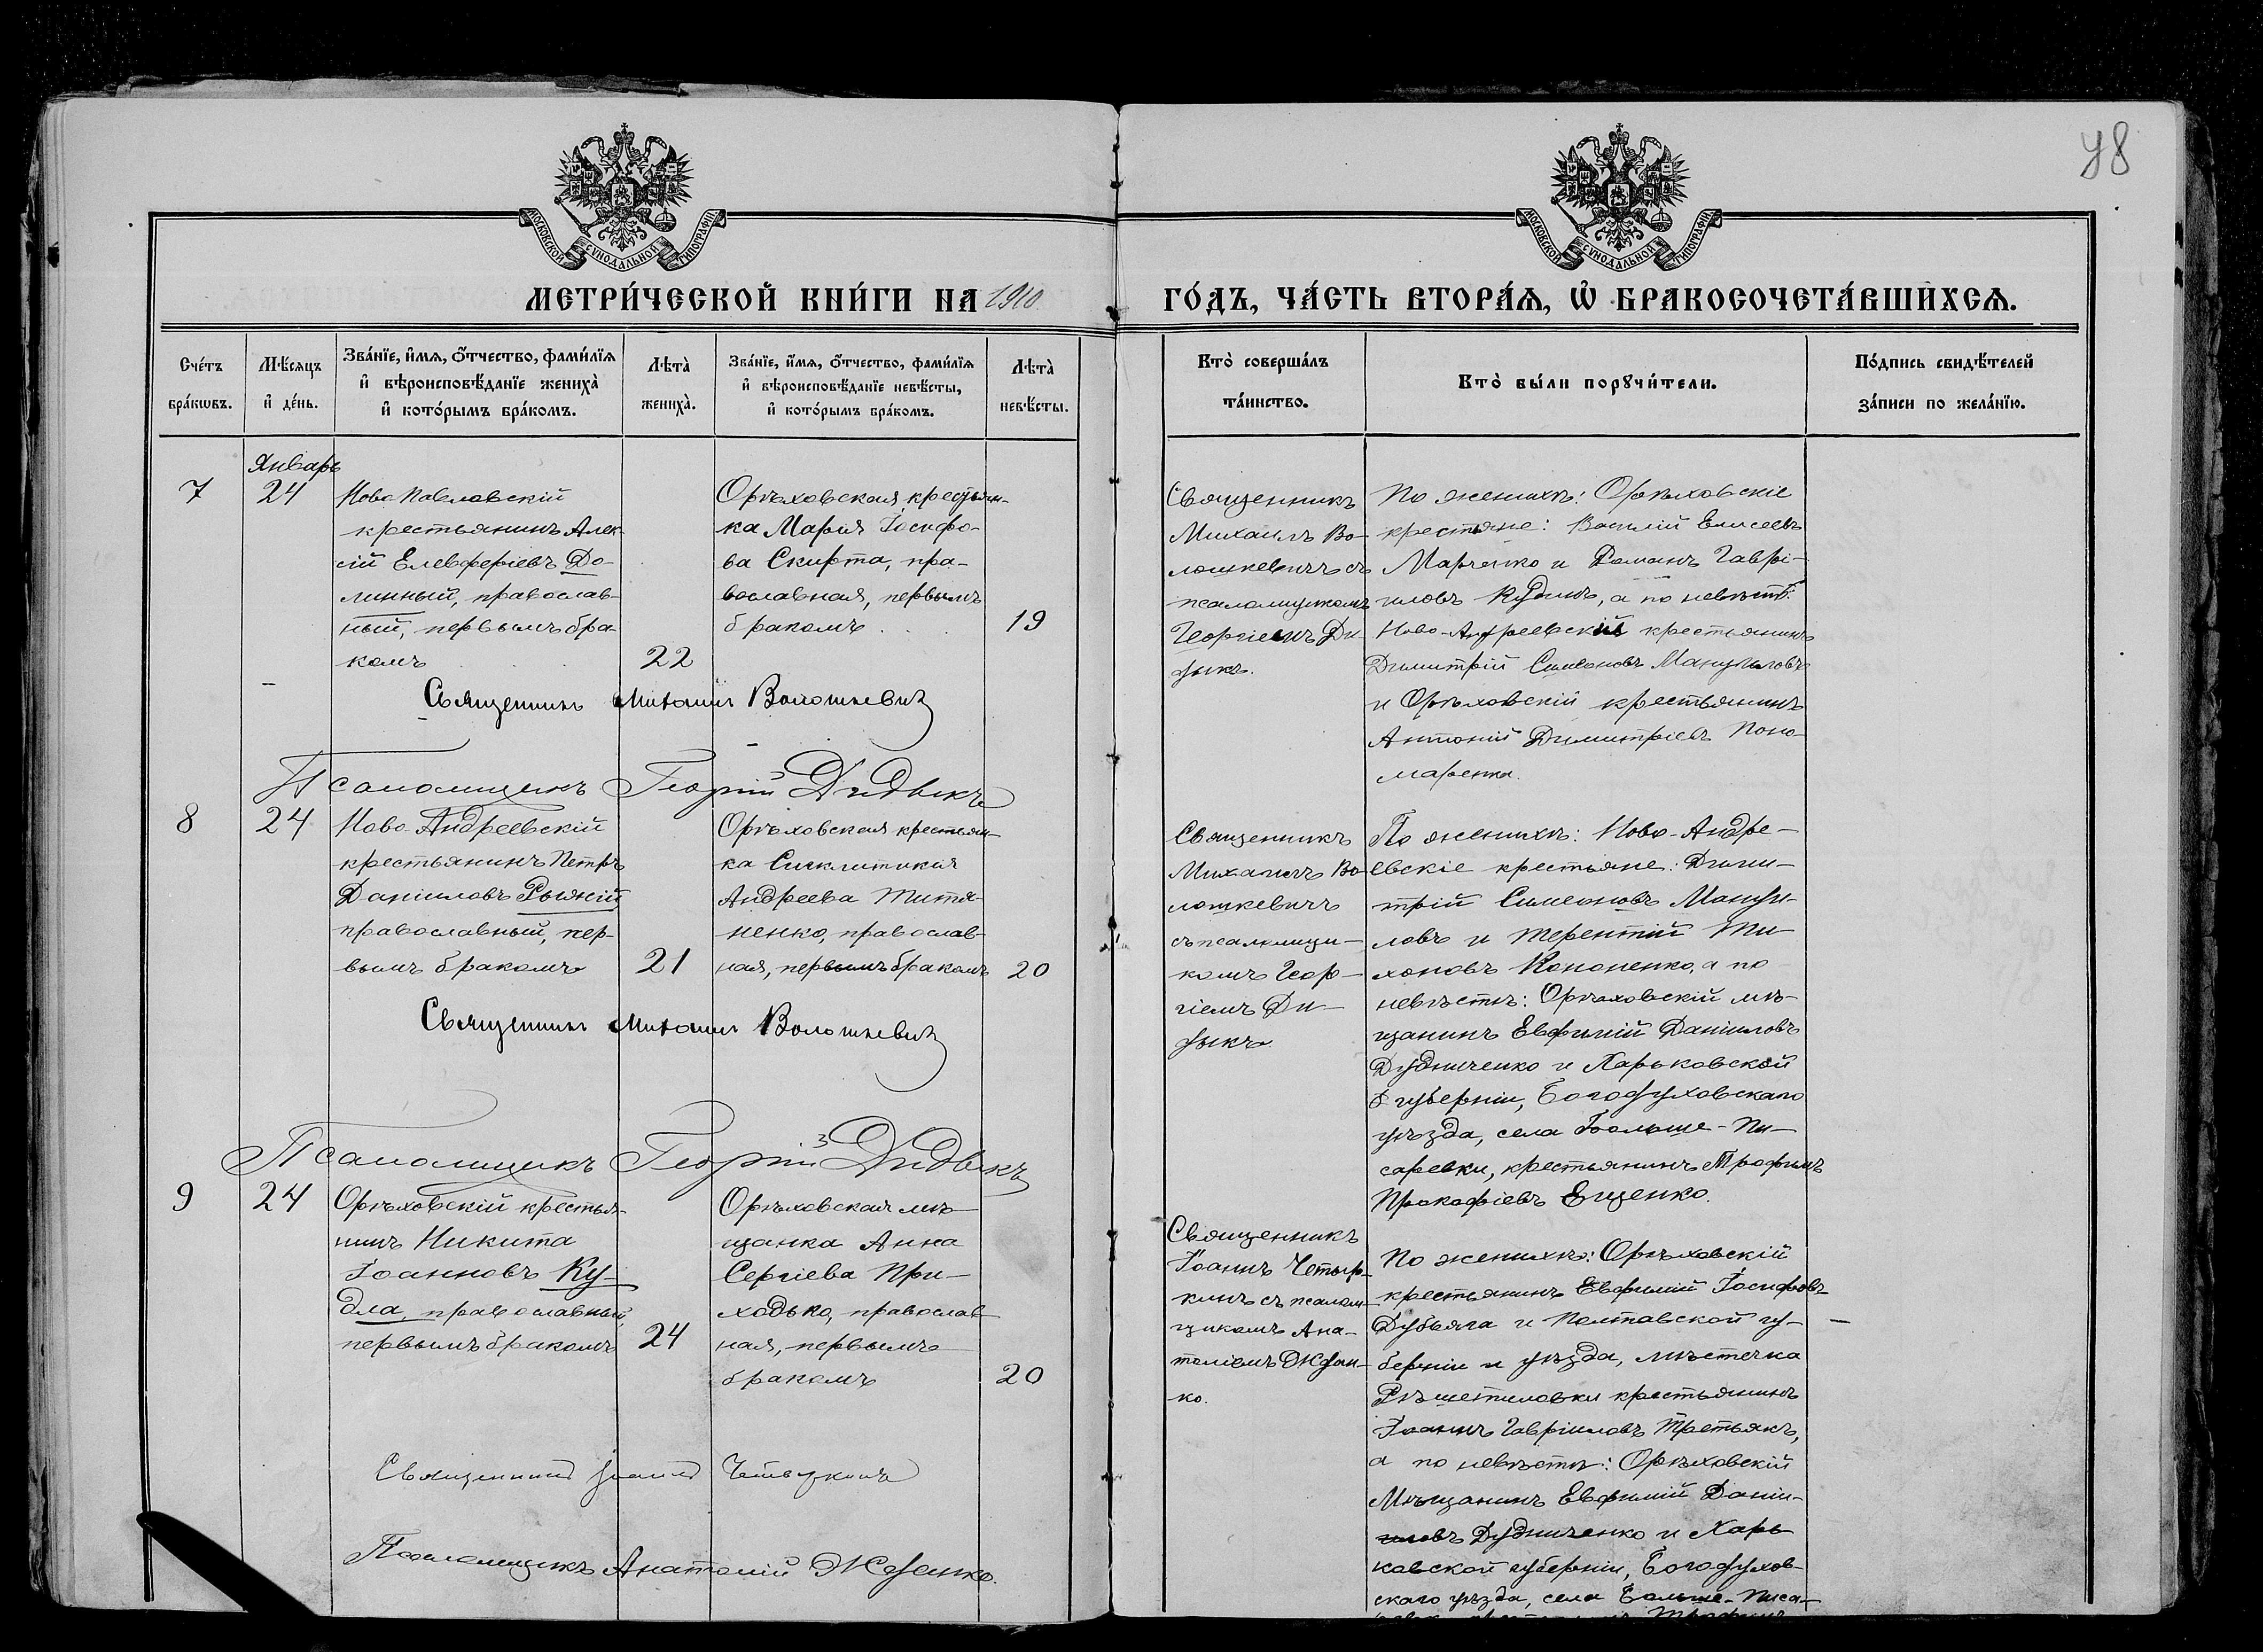 48
МОСКОВСКОЙ СѴНОДАЛЬНОЙ ТИПОГРАФІИ
МОСКОВСКОЙ СѴНОДАЛЬНОЙ ТИПОГРАФІИ
МЕТРИ́ЧЕСКОЙ КНИ́ГИ НА 1910
ГО́ДЪ, ЧА́СТЬ ВТОРА́Я, Ѡ҆ БРАКОСОЧЕТА́ВШИХСЯ.
Сче́тъ
бра́кѡвъ.
Мѣ́сяцъ
и҆ де́нь.
Зва́нїе, и҆́мя, ѻ҆́тчество, фами́лїя
и҆ вѣроисповѣ́данїе жениха̀
и҆ кото́рымъ бра́комъ.
Лѣта̀
жениха̀.
Зва́нїе, и҆́мя, ѻ҆́тчество, фами́лїя
и҆ вѣроисповѣ́данїе невѣ́сты,
и҆ кото́рымъ бра́комъ.
Лѣта̀
невѣ́сты.
Кто̀ соверша́лъ
та́инство.
Кто̀ бы́ли порꙋчи́тели.
По́дпись свидѣ́телей
за́писи по жела́нїю.
7
Январь
24
Ново Павловскій
крестьянинъ Алек-
сій Елевферіевъ До-
линный, православ-
ный, первымъ бра-
комъ
22
Орѣховская крестьян-
ка Марія Іосифо-
ва Скирта, пра-
вославная, первымъ
бракомъ
19
Священникъ
Михаилъ Во-
лошкевичъ съ
псаломщикомъ
Георгіемъ Ди-
дыкъ.
По женихѣ: Орѣховскіе
крестьяне: Василій Елисеевъ
Марченко и Романъ Гаврі-
иловъ Кудинъ, а по невѣстѣ:
Ново-Андреевскій крестьянинъ
Димитрій Симеоновъ Мануиловъ
и Орѣховскій крестьянинъ
Антоній Димитріевъ Поно-
маренко.
Священникъ Михаилъ Волошкевичъ
Псаломщикъ Георгій Дидыкъ
8
24
Ново-Андреевскій
крестьянинъ Петръ
Даниловъ Рыжій
православный, пер-
вымъ бракомъ
21
Орѣховская крестьян-
ка Синклитикія
Андреева Титя-
ненко, православ-
ная, первымъ бракомъ
20
Священникъ
Михаилъ Во-
лошкевичъ
съ псаломщи-
комъ Геор-
гіемъ Ди-
дыкъ
По женихѣ: Ново-Андре-
евскіе крестьяне: Дими-
трій Симеоновъ Мануи-
ловъ и Терентій Ти-
хоновъ Кононенко, а по
невѣстѣ: Орѣховскій мѣ-
щанинъ Евфимій Даніиловъ
Дудниченко и Харьковской
губерніи, Богодуховскаго
уѣзда, села Больше-Пи-
саревки, крестьянинъ Трофимъ
Прокофіевъ Ещенко.
Священникъ Михаилъ Волошкевичъ
Псаломщикъ Георгій Дидыкъ
9
24
Орѣховскій крестья-
нинъ Никита
Іоанновъ Ку-
дла, православный,
первымъ бракомъ
24
Орѣховская мѣ-
щанка Анна
Сергіева При-
ходько, православ-
ная, первымъ
бракомъ
20
Священникъ
Іоаннъ Четыр-
кинъ съ псалом-
щикомъ Ана-
толіемъ Ждан-
ко.
По женихѣ: Орѣховскій
крестьянинъ Евфимій Іосифовъ
Дубяга и Полтавской гу-
берніи и уѣзда, мѣстечка
Рѣшетиловки крестьянинъ
Іоаннъ Гавріиловъ Третьякъ,
а по невѣстѣ: Орѣховскій
Мѣщанинъ Евфимій Даніи-
ловъ Дудниченко и Харь-
ковской губерніи, Богодухов-
скаго уѣзда, села Больше-Писа-
Священникъ Іоаннъ Четыркинъ
Псаломщикъ Анатолій Жданко.